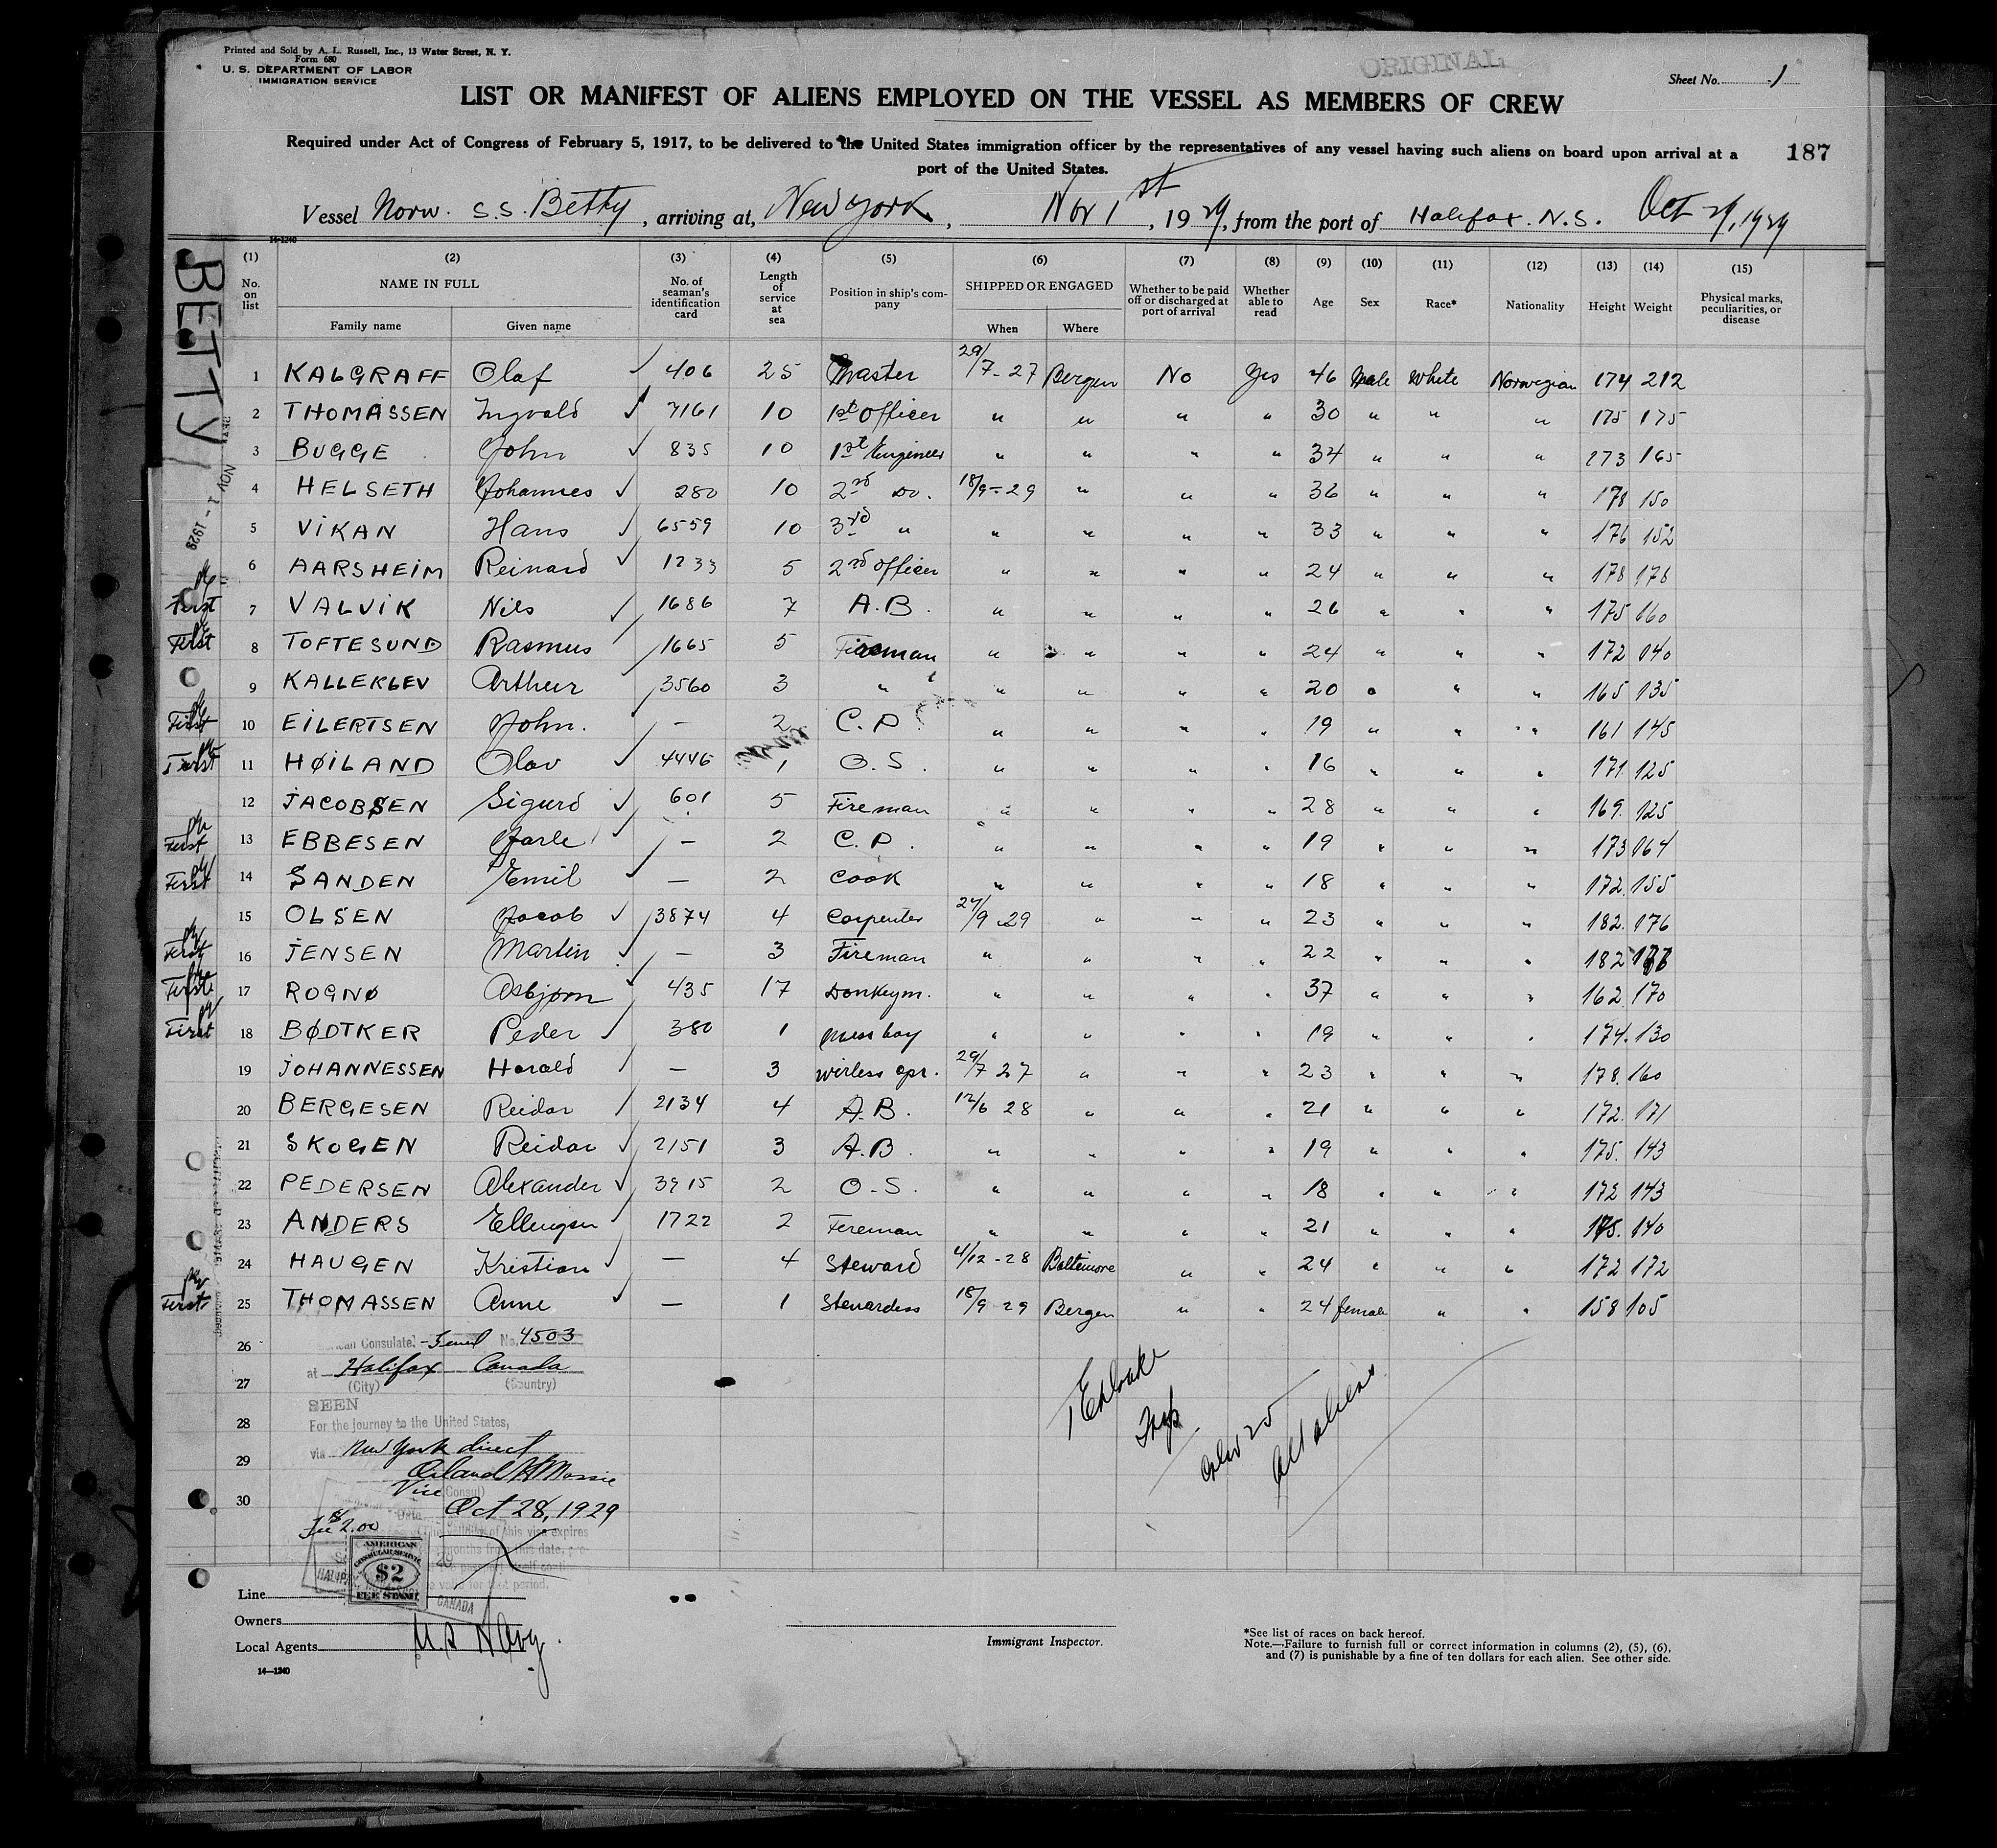 Printed and Sold by A. L. Russell, Inc., 13 Water Street, N. Y.
Form 680
U. S. DEPARTMENT OF LABOR
IMMIGRATION SERVICE
ORIGINAL
Sheet No. 1
LIST OR MANIFEST OF ALIENS EMPLOYED ON THE VESSEL AS MEMBERS OF CREW
Required under Act of Congress of February 5, 1917, to be delivered to the United States immigration officer by the representatives of any vessel having such aliens on board upon arrival at a
port of the United States.
187
Vessel Norw. S.S. Betty, arriving at, New York, Nov 1st, 1929, from the port of Halifax. N.S. Oct 29, 1929
14-1240
BETTY
NOV 1 - 1929
(1) (2) (3) (4) (5) (6) (7) (8) (9) (10) (11) (12) (13) (14) (15)
No. on list NAME IN FULL Family name Given name No. of seaman's identification card Length of service at sea Position in ship's company SHIPPED OR ENGAGED When Where Whether to be paid off or discharged at port of arrival Whether able to read Age Sex Race* Nationality Height Weight Physical marks, peculiarities, or disease
1 KALGRAFF Olaf ✓ 406 25 Master 29/7-27 Bergen No Yes 46 Male White Norwegian 174 212
2 THOMASSEN Ingvald ✓ 7161 10 1st Officer " " " " 30 " " " 175 175
3 BUGGE John ✓ 835 10 1st Engineer " " " " 34 " " " 273 165
4 HELSETH Johannes ✓ 280 10 2nd Do. 18/9-29 " " " 36 " " " 178 150
5 VIKAN Hans ✓ 6559 10 3rd " " " " " 33 " " " 176 152
6 AARSHEIM Reinard ✓ 1233 5 2nd Officer " " " " 24 " " " 178 176
First 7 VALVIK Nils ✓ 1686 7 A.B. " " " " 26 " " " 175 160
First 8 TOFTESUND Rasmus ✓ 1665 5 Fireman " " " " 24 " " " 172 140
9 KALLEKLEV Arthur ✓ 3560 3 " " " " " 20 " " " 165 135
First 10 EILERTSEN John. ✓ - 2 C.P. " " " " 19 " " " 161 145
First 11 HØILAND Olav ✓ 4446 1 O.S. " " " " 16 " " " 171 125
12 JACOBSEN Sigurd ✓ 601 5 Fireman " " " " 28 " " " 169. 125
First 13 EBBESEN Jarle ✓ - 2 C.P. " " " " 19 " " " 173 164
First 14 SANDEN Emil ✓ - 2 Cook " " " " 18 " " " 172. 155
15 OLSEN Jacob ✓ 3874 4 Carpenter 24/9 29 " " " 23 " " " 182. 176
First 16 JENSEN Martin ✓ - 3 Fireman " " " " 22 " " " 182
First 17 ROGNØ Asbjørn ✓ 435 17 Donkeym. " " " " 37 " " " 162 170
First 18 BØDTKER Peder ✓ 380 1 Mess boy " " " " 19 " " " 174. 130
19 JOHANNESSEN Harald ✓ - 3 Wirless opr. 29/7 27 " " " 23 " " " 178. 160
20 BERGESEN Reidar ✓ 2134 4 A.B. 12/6 28 " " " 21 " " " 172. 171
21 SKOGEN Reidar ✓ 2151 3 A.B. " " " " 19 " " " 175. 143
22 PEDERSEN Alexander ✓ 3915 2 O.S. " " " " 18 " " " 172 143
23 ANDERS Ellingsen ✓ 1722 2 Fireman " " " " 21 " " " 175. 140
24 HAUGEN Kristian ✓ - 4 Steward 4/12-28 Baltimore " " 24 " " " 172 172
First 25 THOMASSEN Anne ✓ - 1 Stewardess 18/9 29 Bergen " " 24 female " " 158 105
26
27
28
29
30
American Consulate No. 4503
at Halifax Canada
(City) (Country)
SEEN
For the journey to the United States,
via New York direct
Vice (Consul)
Date Oct 28, 1929
Fee $2.00
The validity of this visa expires
months from this date,
valid for that period.
AMERICAN CONSULAR SERVICE $2 FEE STAMP
CANADA
all aliens
Line
Owners
Local Agents
Immigrant Inspector.
14—1240
*See list of races on back hereof.
Note.—Failure to furnish full or correct information in columns (2), (5), (6),
and (7) is punishable by a fine of ten dollars for each alien. See other side.